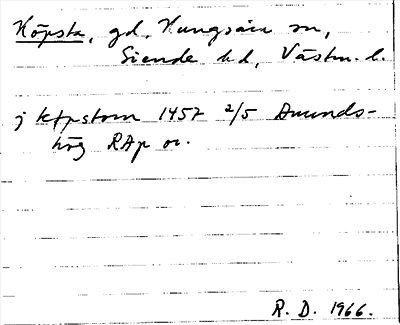 Köpsta, gd, Kungsåra sn,
Siende hd, Västm. l.
j køpstom 1457 2/5 Amunds-
hög RAp or.
R. D. 1966.